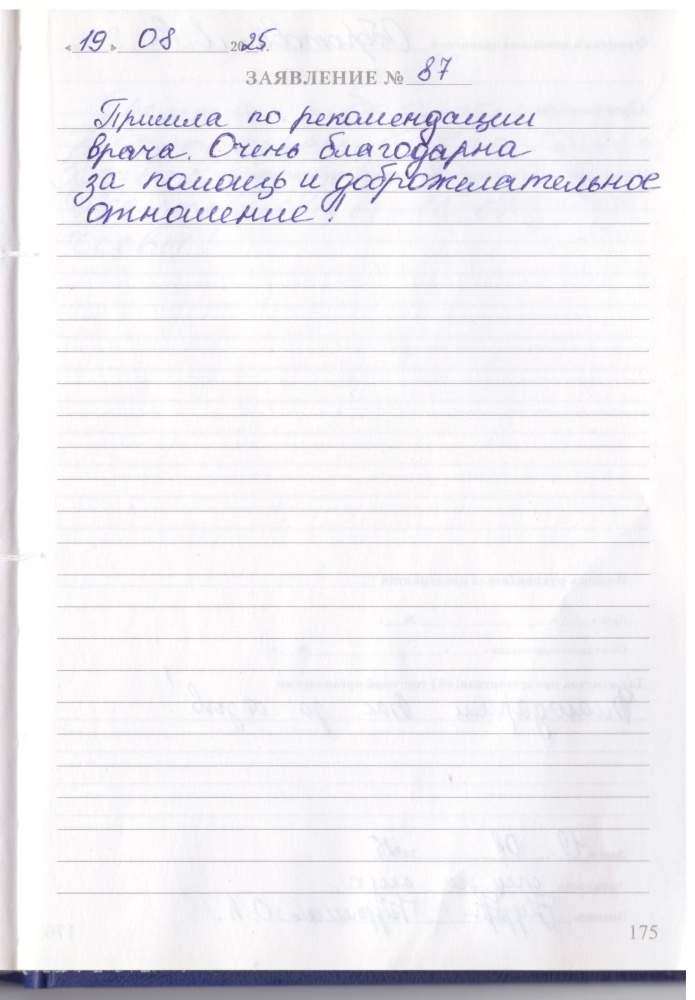 « 19 » 08 2025.
ЗАЯВЛЕНИЕ № 87
Пришла по рекомендации
врача. Очень благодарна
за помощь и доброжелательное
отношение!
175